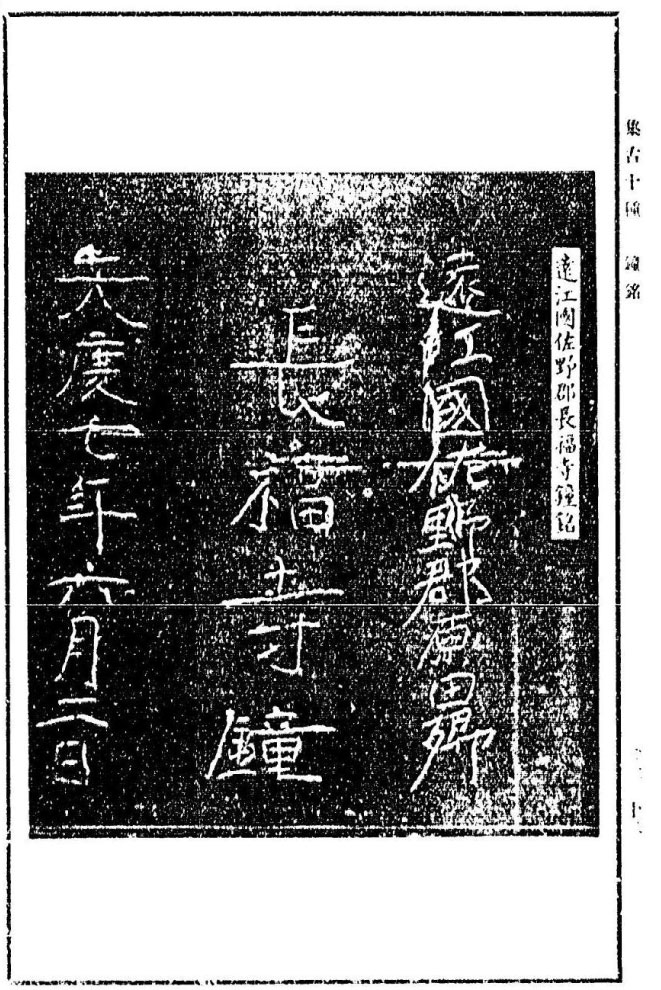 集古十種 鐘銘
遠江國佐野郡長福寺鐘銘
遠江國佐野郡原田郷
長福寺鐘
天慶七年六月二日